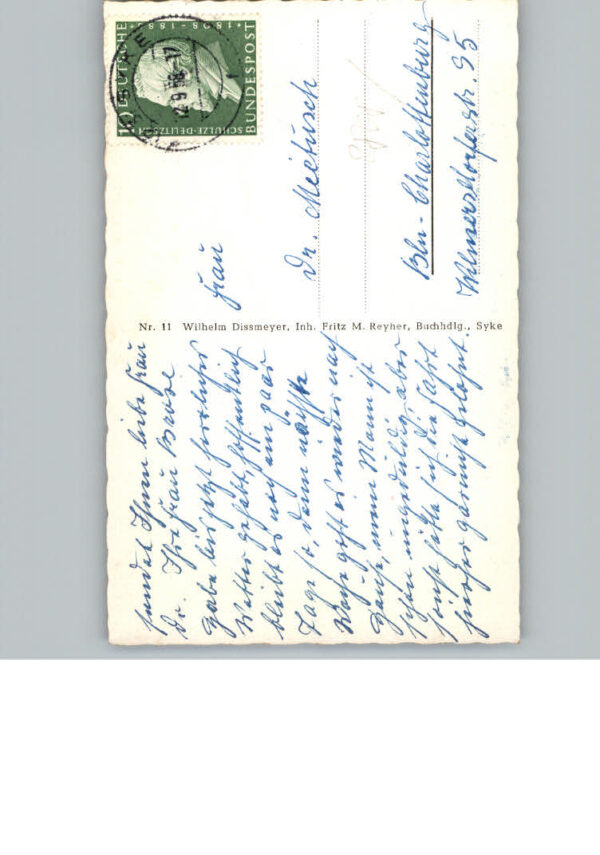 sendet Ihnen liebe Frau
Dr. Ihre Frau
Habe bis jetzt herrliches
Wetter gehabt hoffentlich
bleibt es noch ein paar
Tage so, denn nächste
Woche geht es wieder nach
Hause, mein Mann ist
schon ungeduldig, aber
sonst hätte sich die Fahrt
garnicht gelohnt.
Nr. 11 Wilhelm Dissmeyer, Inh. Fritz M. Reyher, Buchhdlg., Syke
DEUTSCHE
BUNDESPOST
10
SCHULZE-DELITZSCH
SYKE
Frau
Dr. Mietusch
Bln-Charlottenburg
Wilmersdorferstr. 95